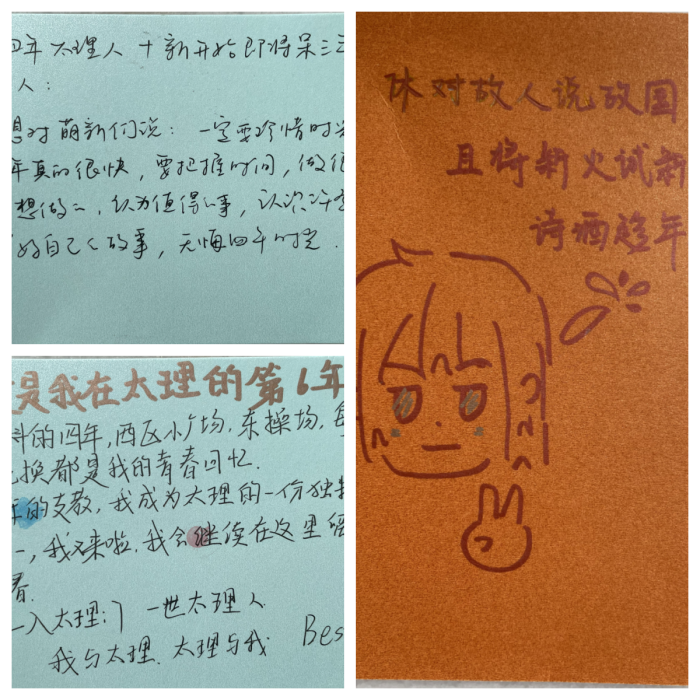 四年太理人 + 新开始即将呆三年
人:
想对萌新们说: 一定要珍惜时光
年真的很快, 要把握时间, 做很
想做的, 认为值得的事, 认识许多
好自己的故事, 无悔四年时光.
是我在太理的第6年
科的四年, 西区小广场. 东操场.
换都是我的青春回忆.
年的支教, 我成为太理的一份独
一, 我又来啦. 我会继续在这里
春.
一入太理门 一世太理人
我与太理. 太理与我 Bes
休对故人说故国
且将新火试新
诗酒趁年